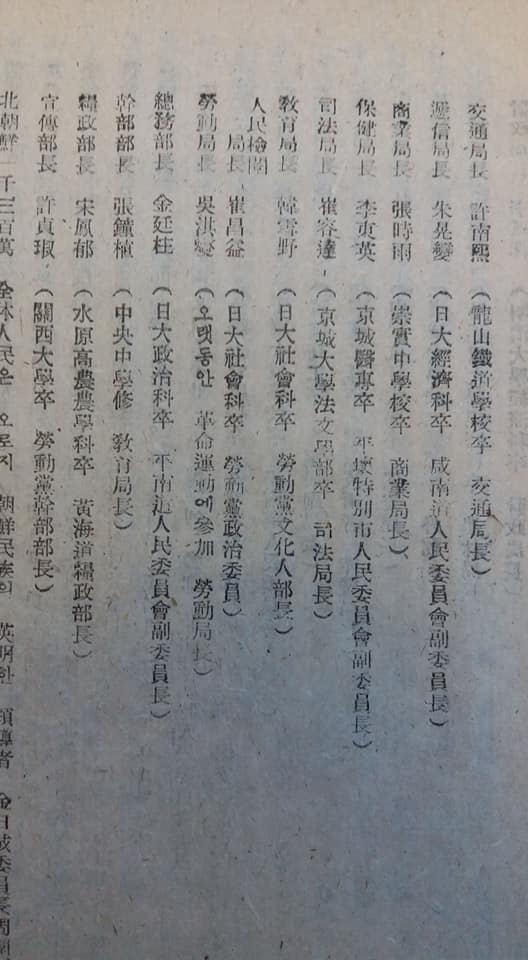 交通局長 許南熙 (龍山鐵道學校卒 交通局長)
遞信局長 朱晃燮 (日大經濟科卒 咸南道人民委員會副委員長)
商業局長 張時雨 (崇實中學校卒 商業局長)
保健局長 李東英 (京城醫專卒 平壤特別市人民委員會副委員長)
司法局長 崔容達 (京城大學法文學部卒 司法局長)
敎育局長 韓雪野 (日大社會科卒 勞動黨文化人部長)
人民檢閱局長 崔昌益 (日大社會科卒 勞動黨政治委員)
勞動局長 吳淇燮 (오랫동안 革命運動에參加 勞動局長)
總務部長 金廷柱 (日大政治科卒 平南道人民委員會副委員長)
幹部部長 張鐘植 (中央中學修 敎育局長)
糧政部長 宋鳳郁 (水原高農農學科卒 黃海道糧政部長)
宣傳部長 許貞琡 (關西大學卒 勞動黨幹部部長)
北朝鮮 一千三百萬 全體人民은 오로지 朝鮮民族의 英明한 領導者 金日成委員長周圍